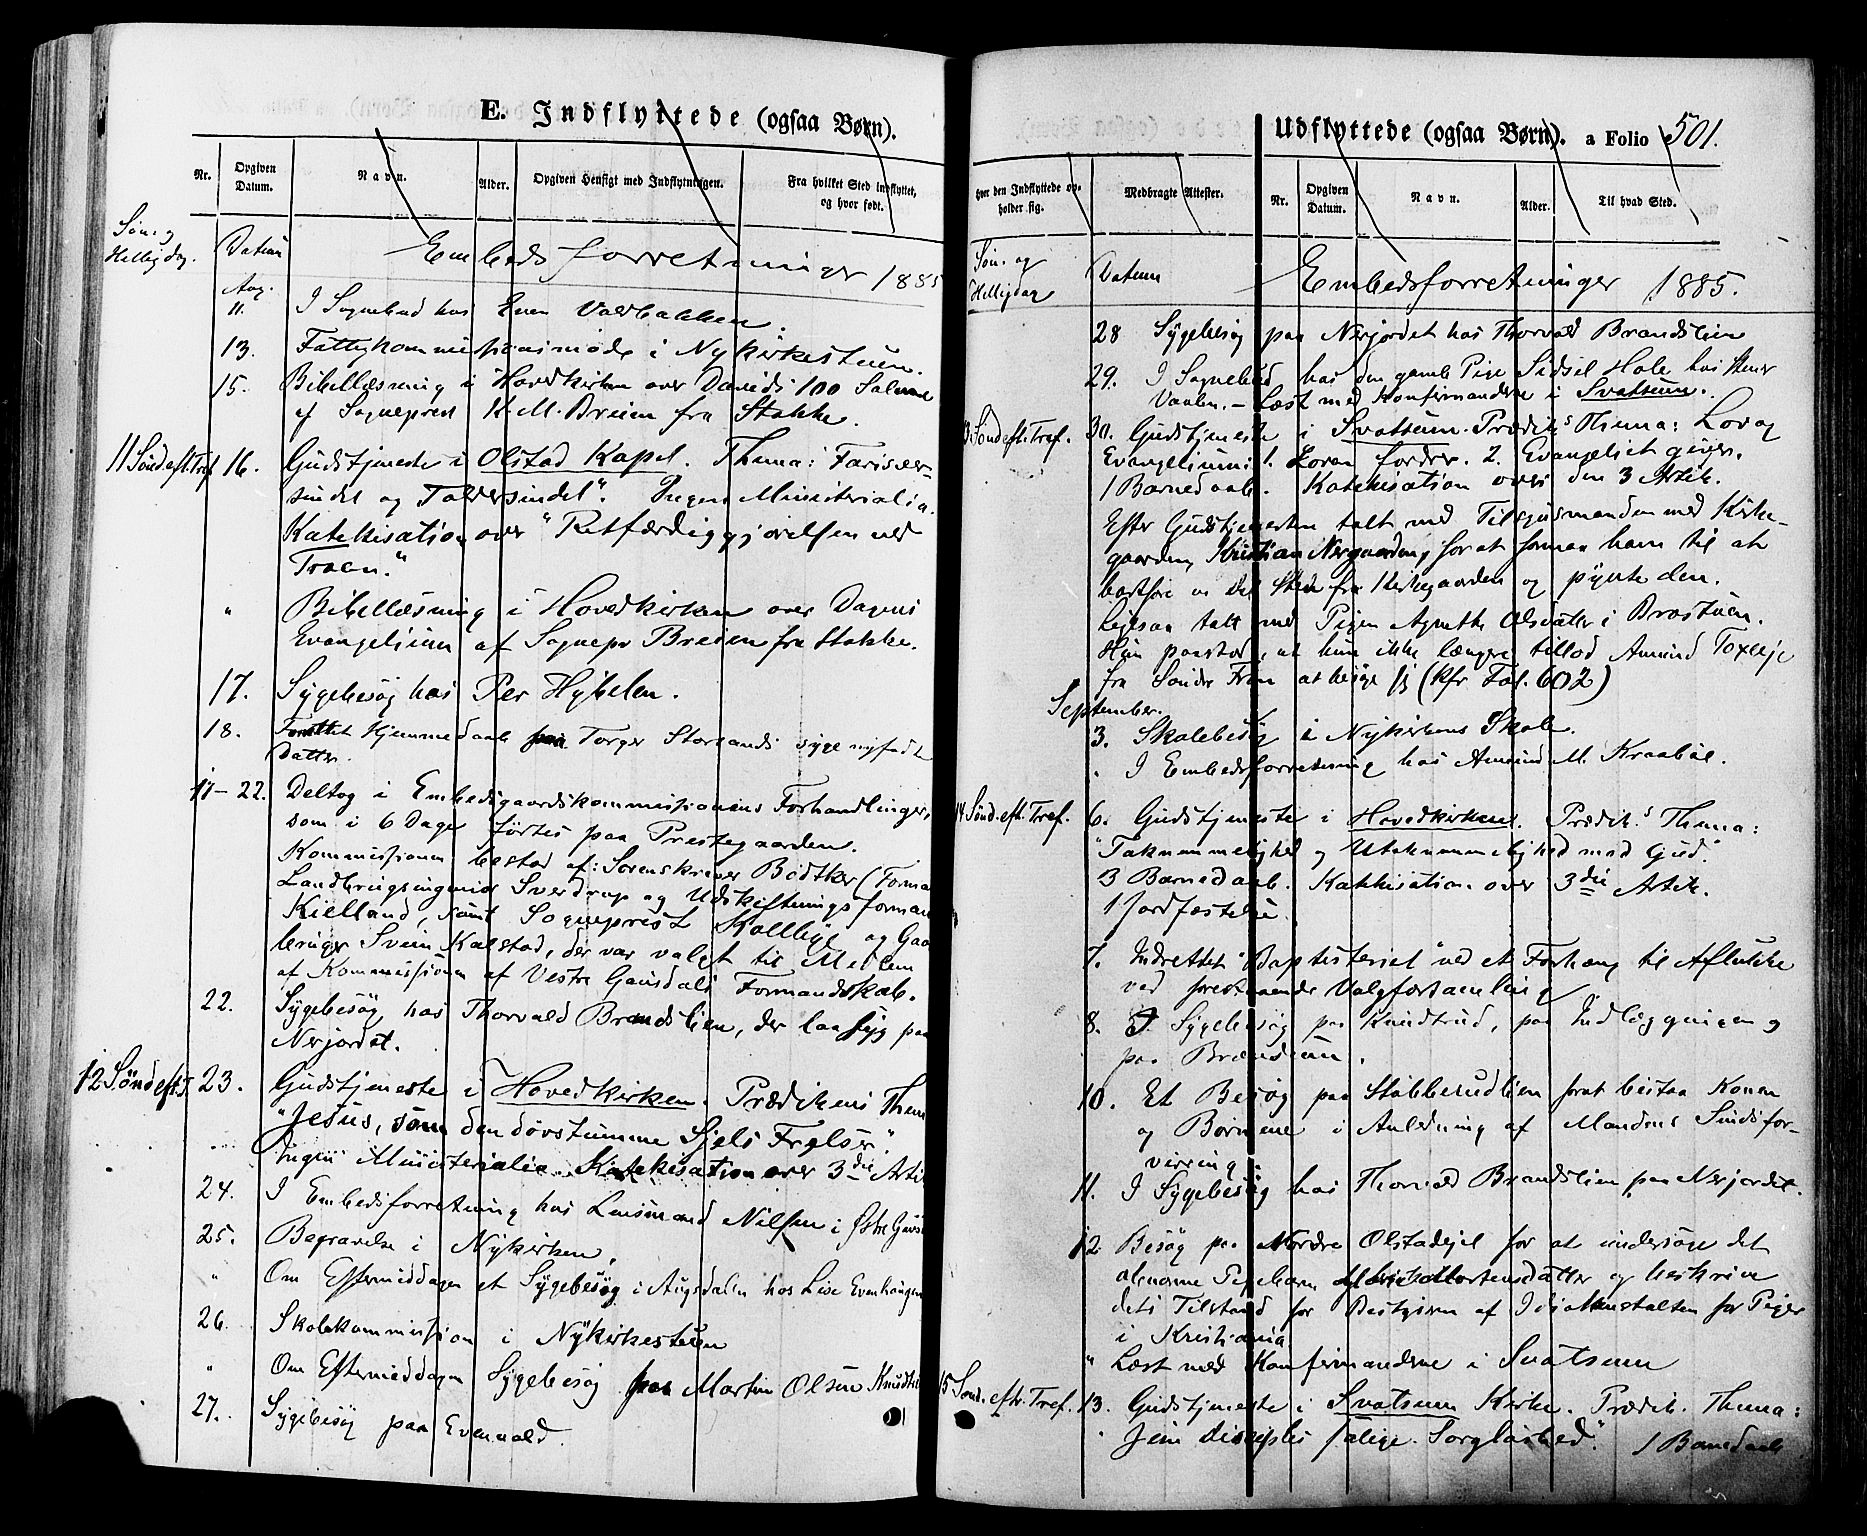 E. Indflyttede (ogsaa Børn).
Nr.
Opgiven Datum.
Navn.
Alder.
Opgiven Hensigt med Indflytningen.
Fra hvilket Sted indflyttet, og hvor født.
Søn- og Helligdag.
Datum
Embedsforretninger 1885
Aug.
11. I Sognebud hos Even
13. Fattigkommissionsmøde i Nykirkestuen.
15. Bibellæsning i Hovedkirken over Davids 100 Salme
af Sogneprest K. M. Breien fra Stokke.
11 Sønd eft. Tref. 16. Gudstjeneste i Olstad Kapel. Thema: Farisæer-
sindet og Toldersindet". Ingen Ministerialia.
Katekisation over "Retfærdiggjørelsen ved
Troen."
" Bibellæsning i Hovedkirken over Dagens
Evangelium af Sognepr Breien fra Stokke.
17. Sygebesøg hos Per Hybelen.
18. Hjemmedaab paa Torger Storsands syge nyfødte
Datter.
17-22. Deltog i Embedsgaardskommissionens Forhandlinger,
som i 6 Dage førtes paa Prestegaarden.
Kommissionen bestod af: Sorenskriver Bødtker (Forma
Landbrugsingeniør Sverdrup og Udskiftningsforman
Kielland, samt Sogneprest Kolbye og Gaa
bruger Svein Kalstad, der var valgt til Medlem
af Kommissionen af Vestre Gausdals Formandskab.
22. Sygebesøg hos Thorvald Brandslien, der laa syg paa
Nerjordet.
12 Sønd eft. T. 23. Gudstjeneste i Hovedkirken. Prædikens Them
"Jesus, som den døvstumme Sjels Frelser."
Ingen Ministerialia. Katekisation over 3die Arti
24. I Embedsforretning hos Lensmand Nilsen i Østre Gausd
25. Begravelse i Nykirken.
" Om Eftermiddagen et Sygebesøg i Augsdalen hos Lise Evenhaugen
26. Skolekommission i Nykirkestuen
" Om Eftermiddagen Sygebesøg hos Martin Olsen
27. Sygebesøg paa Evenvold.
Udflyttede (ogsaa Børn). a Folio 501.
hvor den Indflyttede opholder sig.
Medbragte Attester.
Nr.
Opgiven Datum.
Navn.
Alder.
Til hvad Sted.
Søn- og Helligdag
Datum
Embedsforretninger 1885.
28 Sygebesøg paa Nerjordet hos Thorvald Brandslien
29. I Sognebud hos den gamle Pige Sidsel Hole hos
Vaalen. - Læst med Konfirmanderne i Svatsum.
13. Sønd eft. Tref. 30. Gudstjeneste i Svatsum. Prædiks Thema: Lov og
Evangelium: 1. Loven fordrer. 2. Evangeliet giver.
1 Barnedaab. Katekisation over den 3 Artik.
Efter Gudstjenesten talt med Tilsynsmanden med Kirke-
gaarden, Kristian Nergaarden, for at formaa ham til at
bortføre en Del Sten fra Kirkegaarden og pynte den.
Ligesaa talt med Pigen Agnethe Olsdatter i Brostuen.
Hun paastod, at hun ikke længere tillod Amund
fra Søndre Fron at besøge sig (kfr Fol. 602)
September.
3. Skolebesøg i Nykirkens Skole.
" I Embedsforretning hos Amund M. Kraabøl.
14 Sønd. eft. Tref. 6. Gudstjeneste i Hovedkirken. Prædik.s Thema:
"Taknemmelighed og Utaknemmelighed mod Gud."
3 Barnedaab. Katekisation over 3die Artik.
1 Jordfæstelse.
7. Indrettet "Baptisteriet" ved et Forhæng til Aflukke
ved forestaaende Valgforsamling
8. I Sygebesøg paa Knudtrud, paa Indlæggningen og
paa
10. Et Besøg paa Stabberudlien forat bistaa Konen
og Børnene i Anledning af Mandens Sindsfor-
virring.
11. I Sygebesøg hos Thorvald Brandslien paa Nerjordet.
12. Besøg paa Nordre Olstadeje for at undersøge det
abnorme Pigebarn Mortensdatter og beskrive
dets Tilstand for Bestyreren af Idiotanstalten for Piger
i Kristiania
" Læst med Konfirmanderne i Svatsum
15 Sønd. eft. Tref. 13. Gudstjeneste i Svatsum Kirke. Prædik. Thema:
Jesu Disciples salige Sorgløshed." 1 Barnedaab